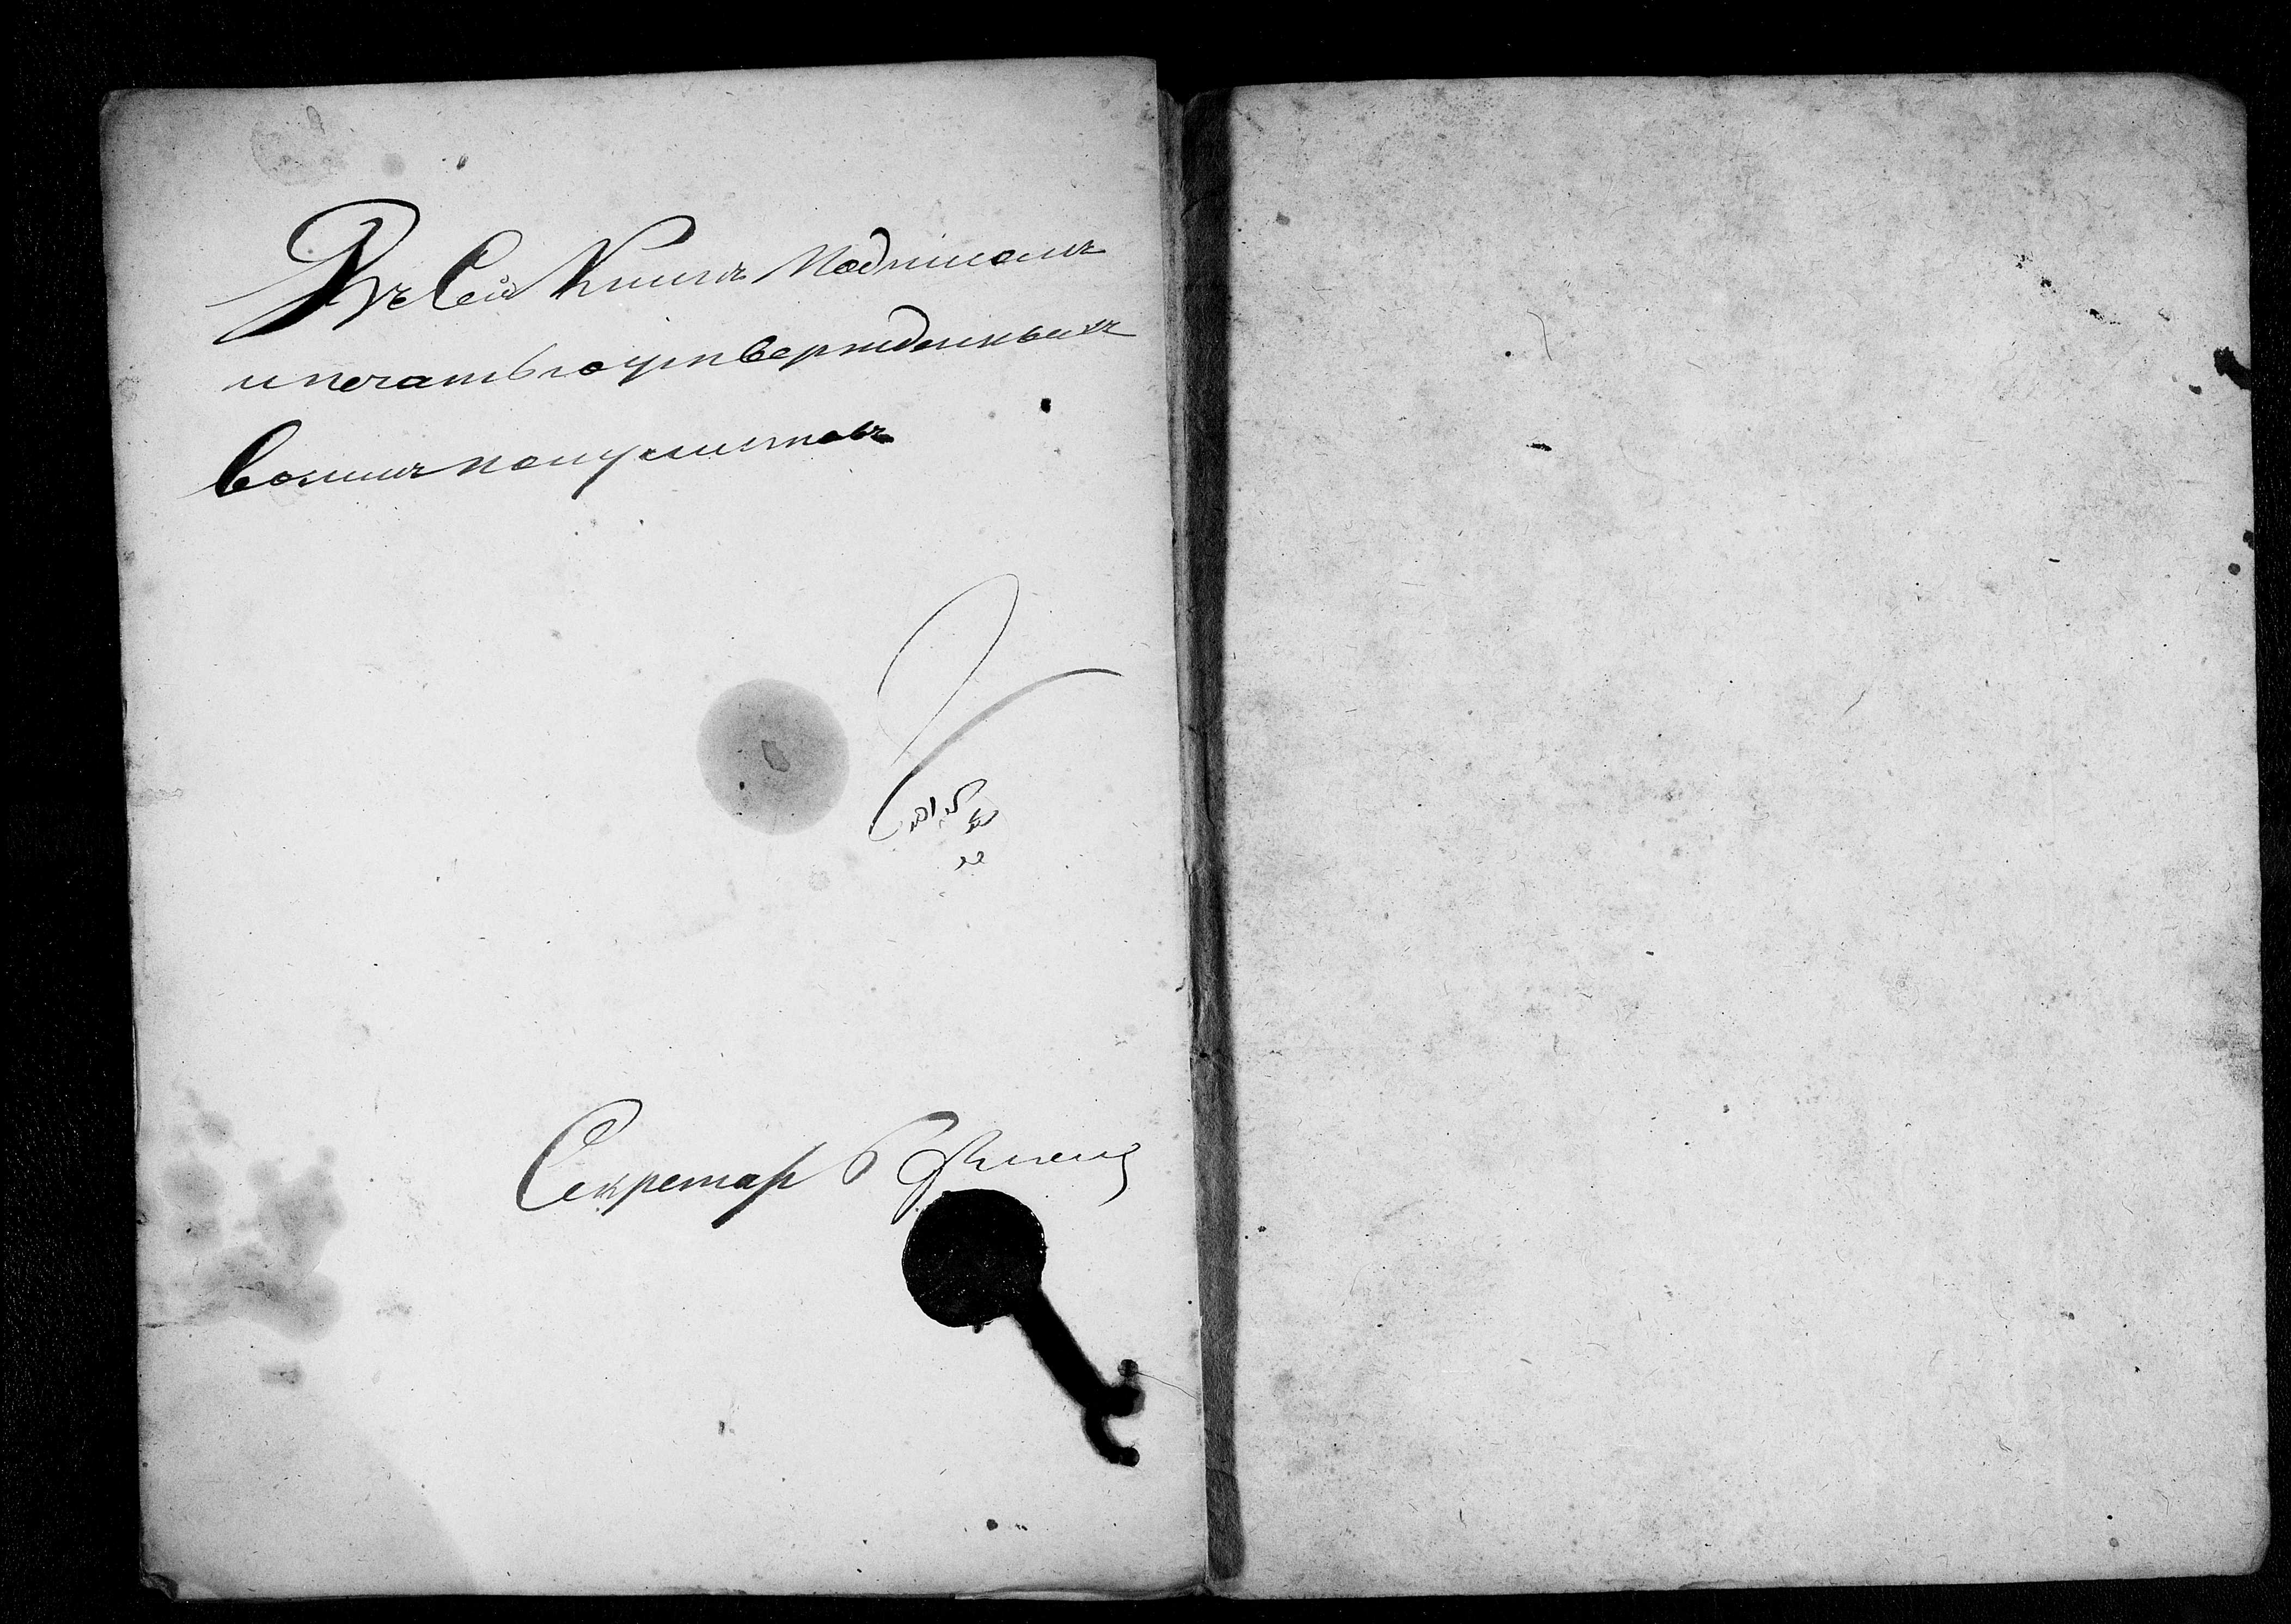 Въ Сей Книгѣ Подписомъ
и печатью утвержденныхъ
восимъ полулистовъ
Секретарь